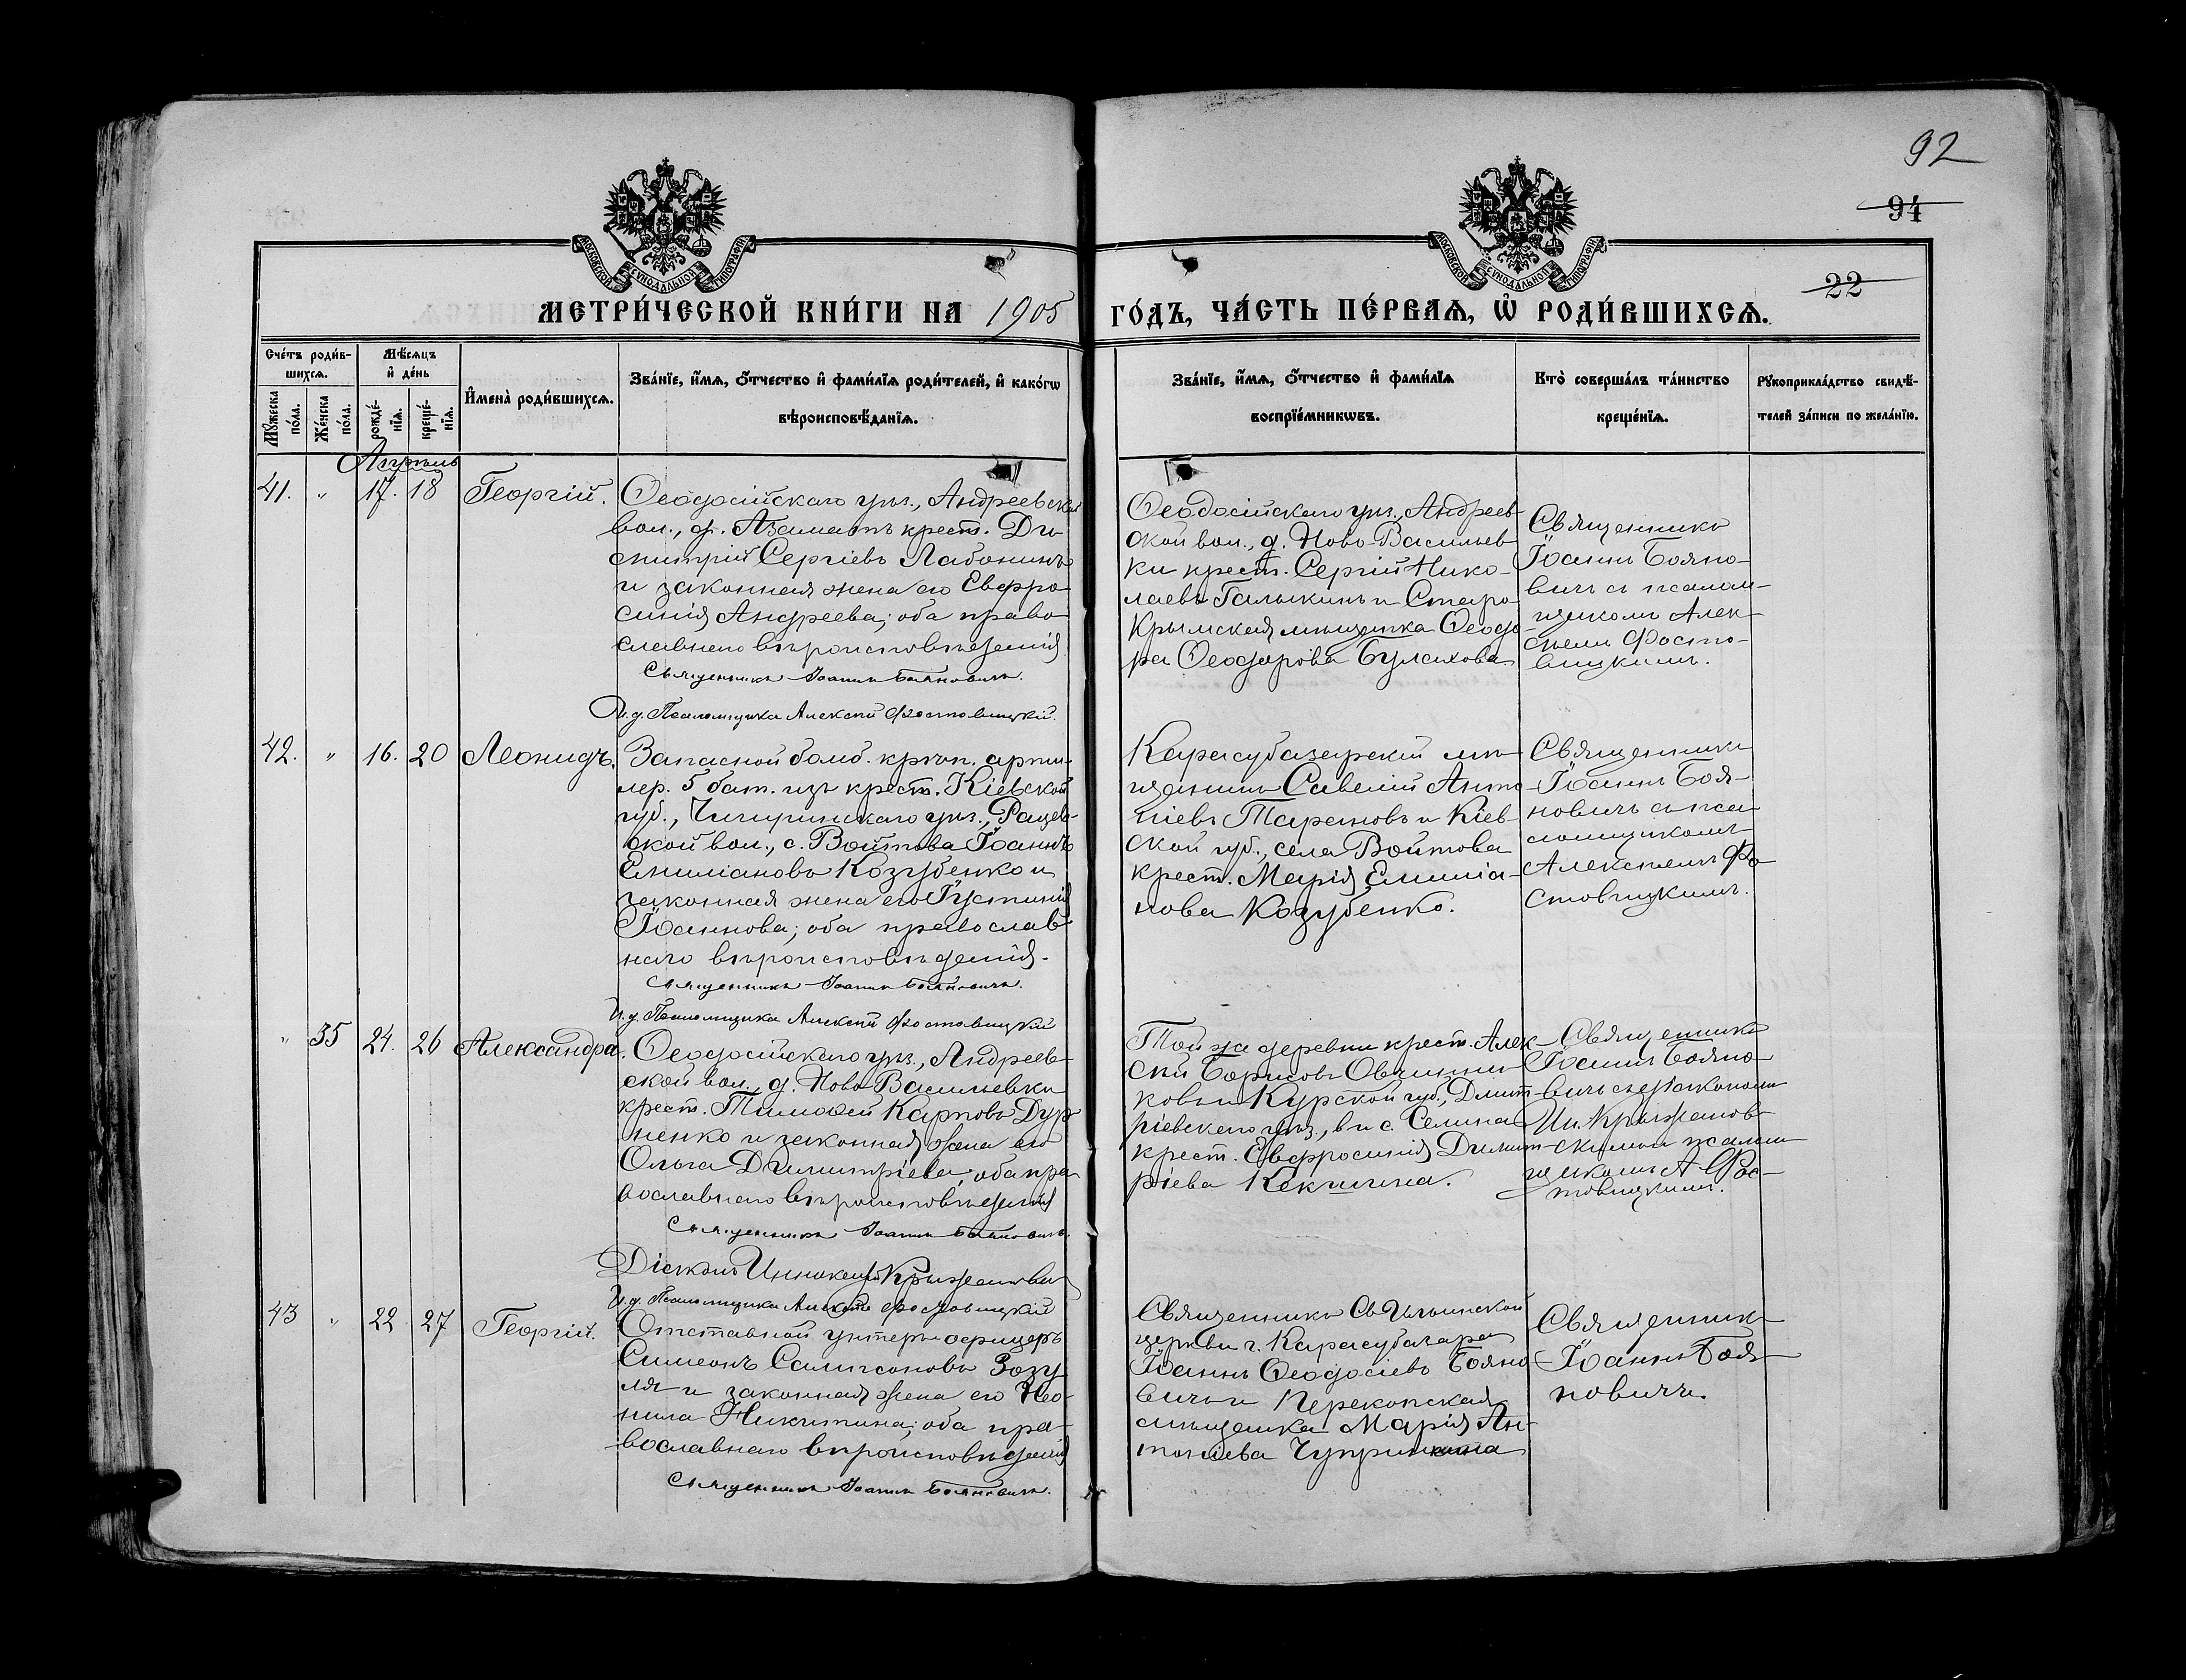 92
94
22
МОСКОВСКОЙ СѴНОДАЛЬНОЙ ТИПОГРАФІИ
МОСКОВСКОЙ СѴНОДАЛЬНОЙ ТИПОГРАФІИ
МЕТРИ́ЧЕСКОЙ КНИ́ГИ НА 1905 ГО́ДЪ, ЧА́СТЬ ПЕ́РВАѦ, Ѡ҆ РОДИ́ВШИХСѦ.
Сче́тъ роди́в-
шихсѧ.
Мꙋ́жеска по́ла.
Же́нска по́ла.
Мѣ́сѧцъ
и҆ де́нь
рожде́-нїѧ.
креще́-нїѧ.
И҆мена̀ роди́вшихсѧ.
Зва́нїе, и҆́мѧ, ѻ҆́тчество и҆ фами́лїѧ роди́телей, и҆ како́гѡ
вѣроисповѣ́данїѧ.
Зва́нїе, и҆́мѧ, ѻ҆́тчество и҆ фами́лїѧ
воспрїе́мникѡвъ.
Кто̀ соверша́лъ та́инство
креще́нїѧ.
Рꙋкоприкла́дство свидѣ́-
телей за́писи по жела́нїю.
Апрѣль
41. " 17. 18 Георгій.
Ѳеодосійскаго уѣз., Андреевской
вол., д. Азаматъ крест. Ди-
митрій Сергіевъ Лабонинъ
и законная жена его Евфро-
синія Андреева; оба право-
славнаго вѣроисповѣденія
Священникъ Іоаннъ Бояновичъ.
И.д. Псаломщика Алексѣй Фостовицкій.
Ѳеодосійскаго уѣз., Андреев-
ской вол., д. Ново-Васильев-
ки крест. Сергій Нико-
лаевъ Галыкинъ и Старо-
Крымская мѣщанка Ѳеодо-
ра Ѳеодорова Булахова
Священникъ
Іоаннъ Бояно-
вичъ съ псалом-
щикомъ Алек-
сѣемъ Фосто-
вицкимъ.
42. " 16. 20 Леонидъ.
Запасной бомб. крѣп. артил-
лер. 5 бат. изъ крест. Кіевской
губ., Чигиринскаго уѣз., Рацев-
ской вол., с. Войтова Іоаннъ
Емиліановъ Козубенко и
законная жена его Іустинія
Іоаннова; оба православ-
наго вѣроисповѣденія.
Священникъ Іоаннъ Бояновичъ.
И.д. Псаломщика Алексѣй Фостовицкій
Карасубазарскій мѣ-
щанинъ Савелій Анто-
ніевъ Тарановъ и Кіев-
ской губ., села Войтова
крест. Марія Емиліа-
нова Козубенко.
Священникъ
Іоаннъ Боя-
новичъ съ пса-
ломщикомъ
Алексѣемъ Фо-
стовицкимъ.
" 35 24. 26 Александра.
Ѳеодосійскаго уѣз., Андреев-
ской вол., д. Ново-Васильевки
крест. Тимоѳей Карповъ Дур-
ненко и законная жена его
Ольга Димитріева; оба пра-
вославнаго вѣроисповѣденія
Священникъ Іоаннъ Бояновичъ.
Діаконъ Иннокентій Крыжановскій
И.д. Псаломщика Алексѣй Фостовицкій
Той же деревни крест. Алек-
сѣй Борисовъ Овчинни-
ковъ и Курской губ., Дмит-
ріевскаго уѣз., в. и с. Селина
крест. Евфросинія Димит-
ріева Кекшина.
Священникъ
Іоаннъ Бояно-
вичъ съ діакономъ
Ин. Крыжанов-
скимъ и псалом-
щикомъ А. Фос-
товицкимъ.
43 " 22 27 Георгій.
Отставной унтеръ-офицеръ
Симеонъ Сампсоновъ Зозу-
ля и законная жена его Нео-
нила Никитина; оба пра-
вославнаго вѣроисповѣденія
Священникъ Іоаннъ Бояновичъ.
Священникъ Св. Ильинской
церкви г. Карасубазара
Іоаннъ Ѳеодосіевъ Бояно-
вичъ и Перекопская
мѣщанка Марія Ан-
тоніева Чуприн
Священникъ
Іоаннъ Боя-
новичъ.